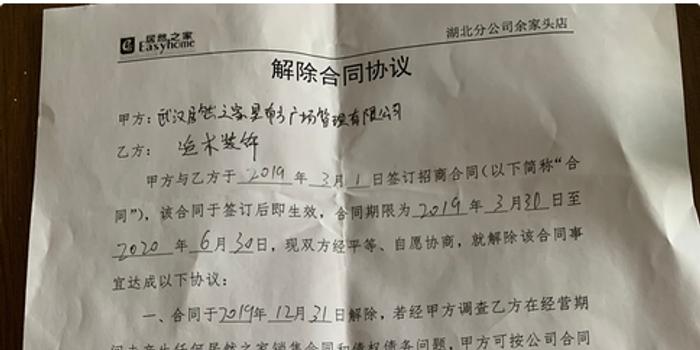 居然之家
Easyhome
湖北分公司余家头店
解除合同协议
甲方：武汉居然之家 广场管理有限公司
乙方：造木装饰
甲方与乙方于 2019 年 3月 1 日签订招商合同（以下简称“合
同”），该合同于签订后即生效，合同期限为 2019 年 3月 30 日至
2020 年 6月 30 日，现双方经平等、自愿协商，就解除该合同事
宜达成以下协议：
一、合同于2019年12月31日解除，若经甲方调查乙方在经营期
间未产生任何居然之家销售合同和债权债务问题，甲方可按公司合同